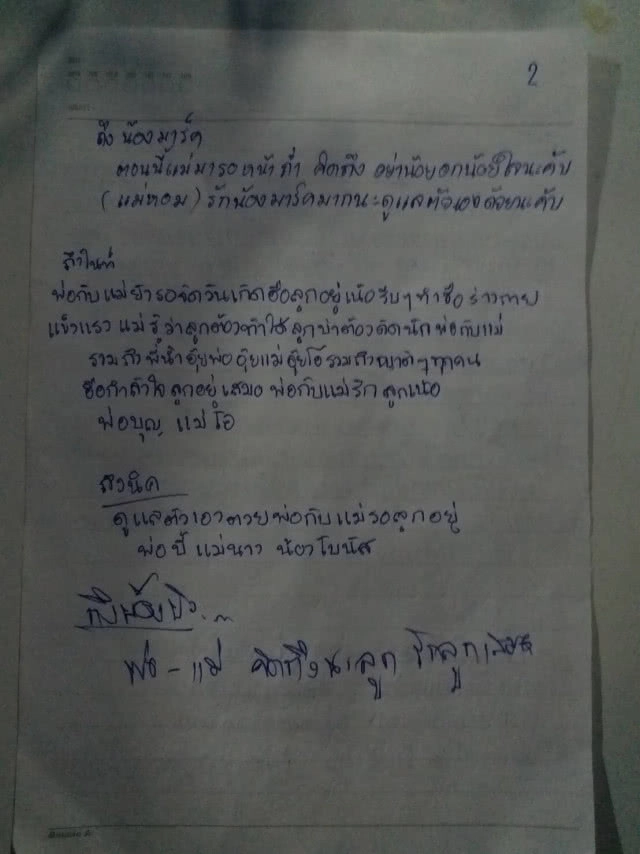 2
ถึง น้องมาร์ค
ตอนนี้แม่มารอหน้าถ้ำ คิดถึง อย่าน้อยอกน้อยใจนะคับ
(แม่หอม) รักน้องมาร์คมากนะดูแลตัวเองด้วยนะคับ
ถึงไนท์
พ่อกับแม่ยังรอจัดวันเกิดฮื้อลูกอยู่เน้อรีบๆทำฮื้อร่างกาย
แข็งแรง แม่รู้ว่าลูกต้องทำได้ลูกบ่าต้องคิดนัก พ่อกับแม่
รวมถึง พี่น้ำ อุ๊ยพ่อ อุ๊ยแม่ อุ๊ยโอ้ รวมถึงญาติๆทุกคน
ฮื้อกำลังใจลูกอยู่เสมอ พ่อกับแม่รักลูกเน้อ
พ่อบุญ แม่โอ
ถึงนิค
ดูแลตัวเองตวยพ่อกับแม่รอลูกอยู่
พ่อปี้ แม่นาง น้องโบนัส
ถึงน้อง
พ่อ - แม่ คิดถึงนะลูก รักลูกเสมอ